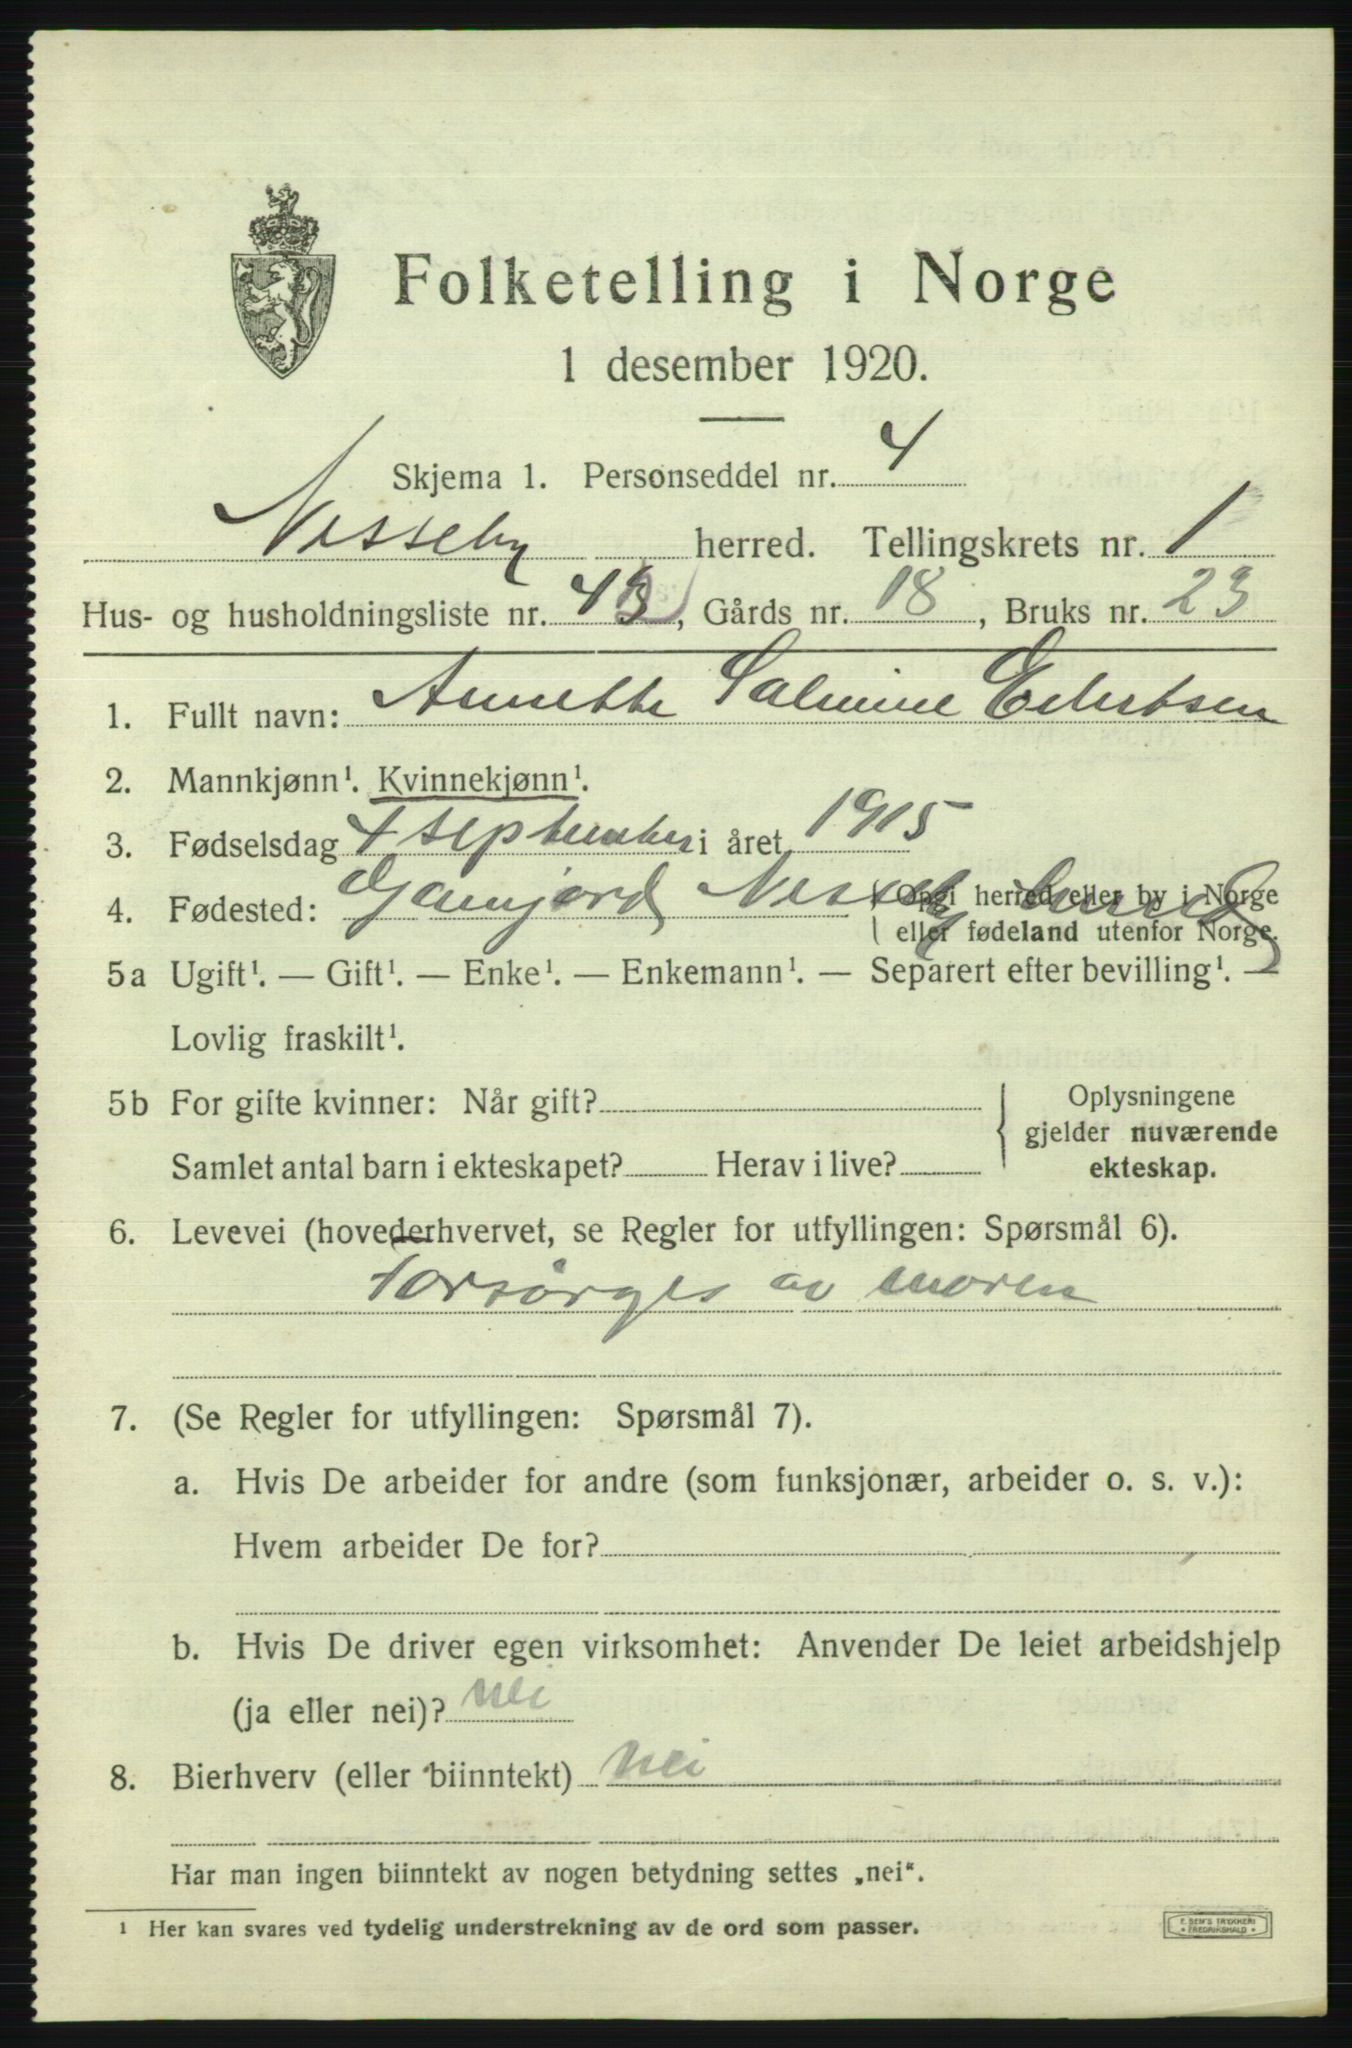 Folketelling i Norge
1 desember 1920.
Skjema 1. Personseddel nr. 4
Nesseby herred. Tellingskrets nr. 1
Hus- og husholdningsliste nr. 42, Gårds nr. 18, Bruks nr. 23
1. Fullt navn: Annette Salmine Edertsen
2. Mannkjønn¹. Kvinnekjønn¹.
3. Fødselsdag 4 september i året 1915
4. Fødested: Nesseby herred (Opgi herred eller by i Norge
eller fødeland utenfor Norge.
5a Ugift¹. — Gift¹. — Enke¹. — Enkemann¹. — Separert efter bevilling¹. —
Lovlig fraskilt¹.
5b For gifte kvinner: Når gift? Oplysningene
gjelder nuværende
Samlet antal barn i ekteskapet? Herav i live? ekteskap.
6. Levevei (hovederhvervet, se Regler for utfyllingen: Spørsmål 6).
Forsørges av moren
7. (Se Regler for utfyllingen: Spørsmål 7).
a. Hvis De arbeider for andre (som funksjonær, arbeider o. s. v.):
Hvem arbeider De for?
b. Hvis De driver egen virksomhet: Anvender De leiet arbeidshjelp
(ja eller nei)? nei
8. Bierhverv (eller biinntekt) nei
Har man ingen biinntekt av nogen betydning settes „nei“.
¹ Her kan svares ved tydelig understrekning av de ord som passer.
E. SEM'S TRYKKERI
FREDRIKSHALD